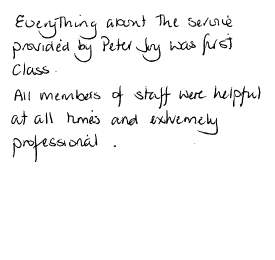 Everything about the service
provided by Peter Joy was first
Class.
All members of staff were helpful
at all times and extremely
professional.